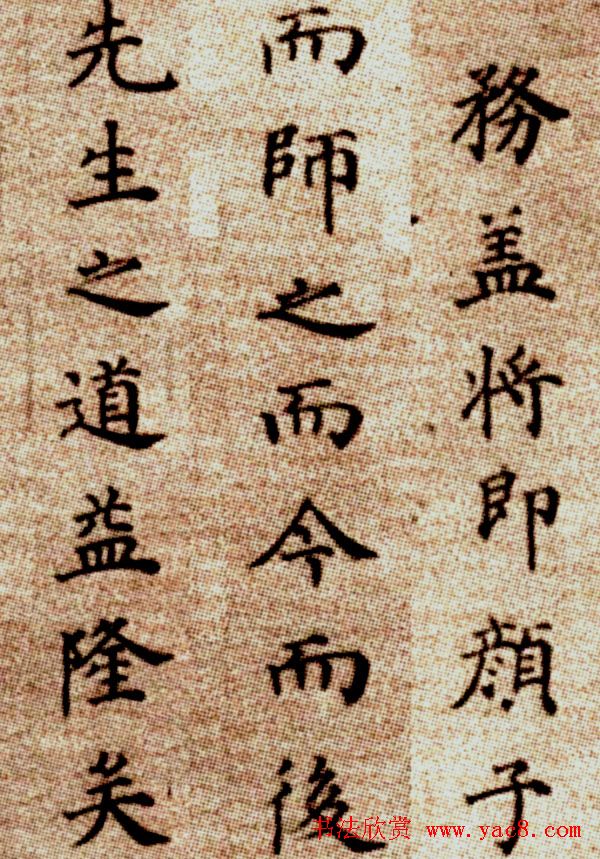 務盖将即顔子
而師之而今而後
先生之道益隆矣
书法欣赏 www.yac8.com